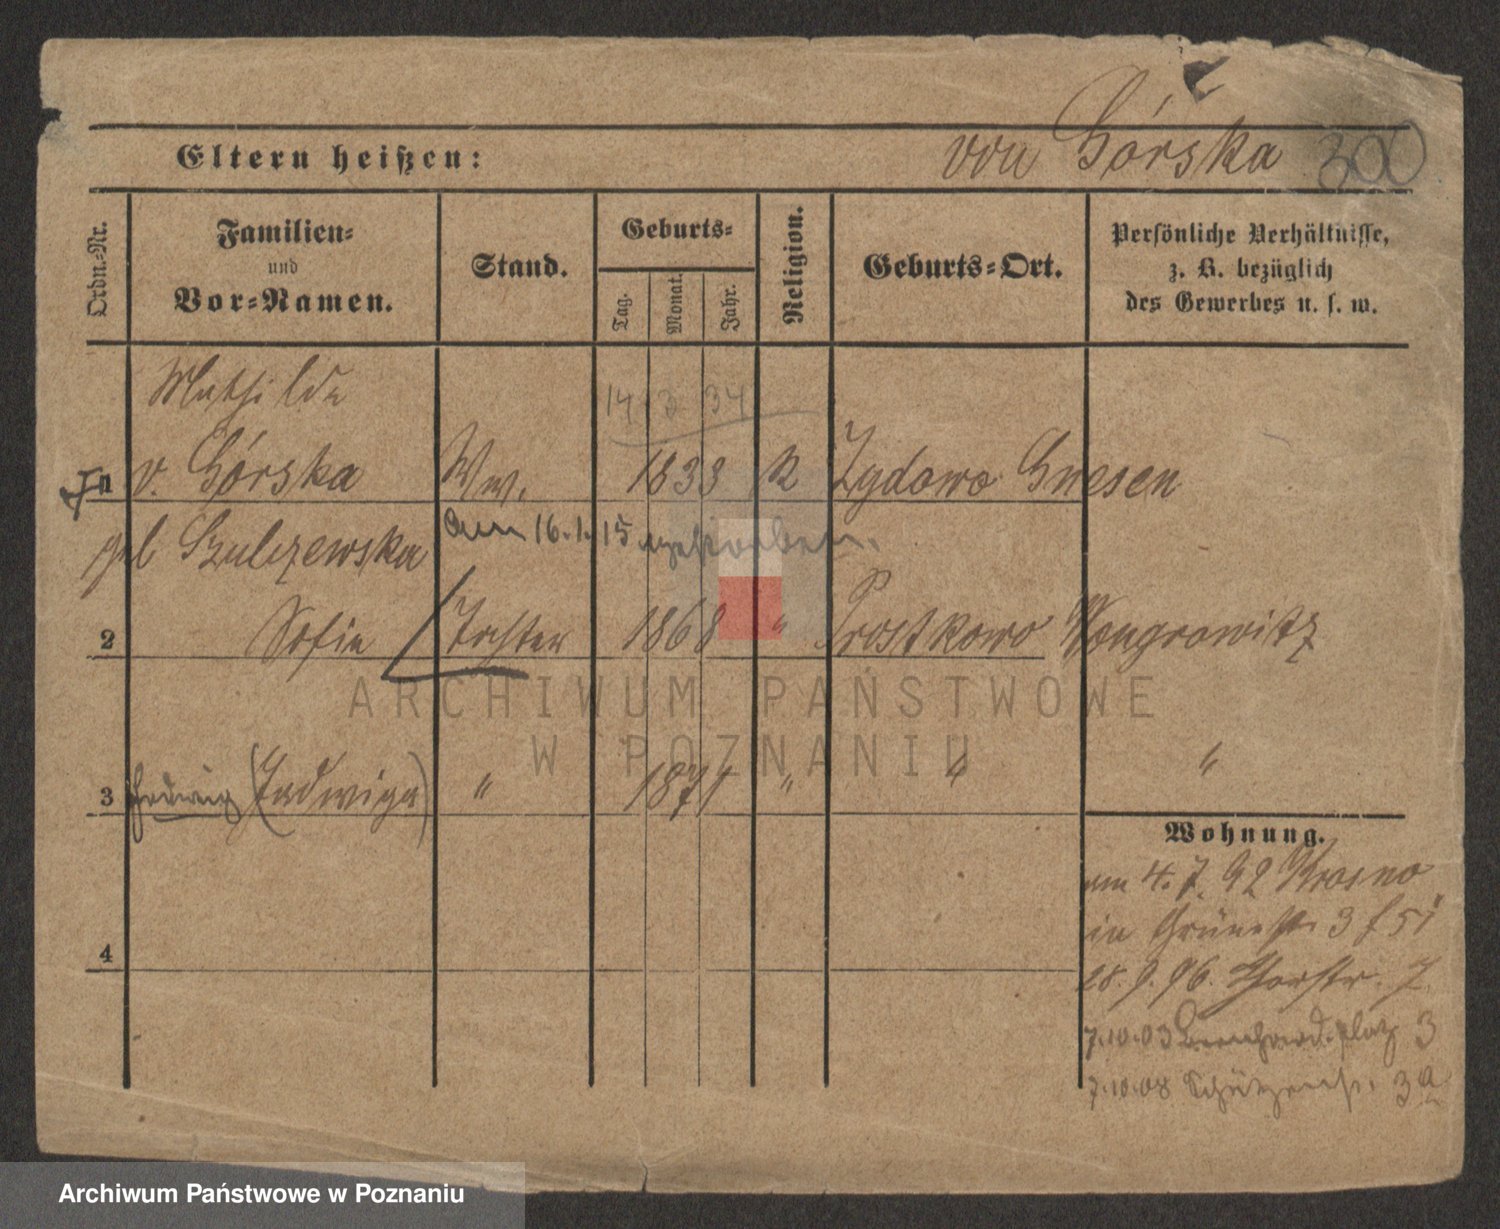 von Górska 300
Eltern heißen:
Ordn.-Nr.
Familien- und Vor-Namen.
Stand.
Geburts-
Tag.
Monat.
Jahr.
Religion.
Geburts-Ort.
Persönliche Verhältnisse, z. B. bezüglich des Gewerbes u. s. w.
Mathilde
14 3 34
1 v. Górska Ww. 1833 K Zydowo Gnesen
am 16.1.15 gestorben.
geb Szulczewska
2 Sofie Tochter 1868 " Prostkowo Wongrowitz
3 Hedwig (Jadwiga) " 1871 " " "
Wohnung.
am 4. 7. 92 Krosno
in Grünestr. 3
4
28. 9. 96. Thorstr. 7.
7.10.03 Bernhard.platz 3
7.10.08 Schützenstr. 3a
ARCHIWUM PAŃSTWOWE
W POZNANIU
Archiwum Państwowe w Poznaniu